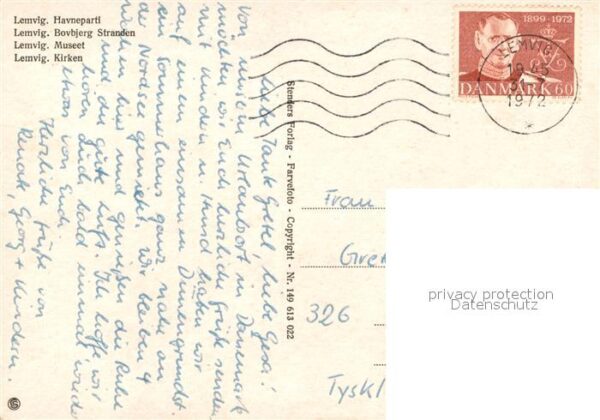 Lemvig. Havneparti
Lemvig. Bovbjerg Stranden
Lemvig. Museet
Lemvig. Kirken
1899-1972
DANMARK 60
LEMVIG
1972
Stenders Forlag - Farvefoto - Copyright - Nr. 149 613 022
Liebe Tante Gretel, liebe Gesa!
Von unserm Urlaubsort in Dänemark
möchten wir Euch herzliche Grüße senden.
Mit Kindern u. Hund haben wir
auf einem einsamen Dünengrundst.
ein Sommerhaus ganz nahe an
der Nordsee gemietet. Wir bleiben 4
Wochen hier und genießen die Ruhe
und die gute Luft. Ich hoffe wir
hören Euch bald einmal wieder
etwas von Euch.
Herzliche Grüße von
Renate, Georg + Kindern.
Frau
Gre
326
Tyskl
privacy protection
Datenschutz